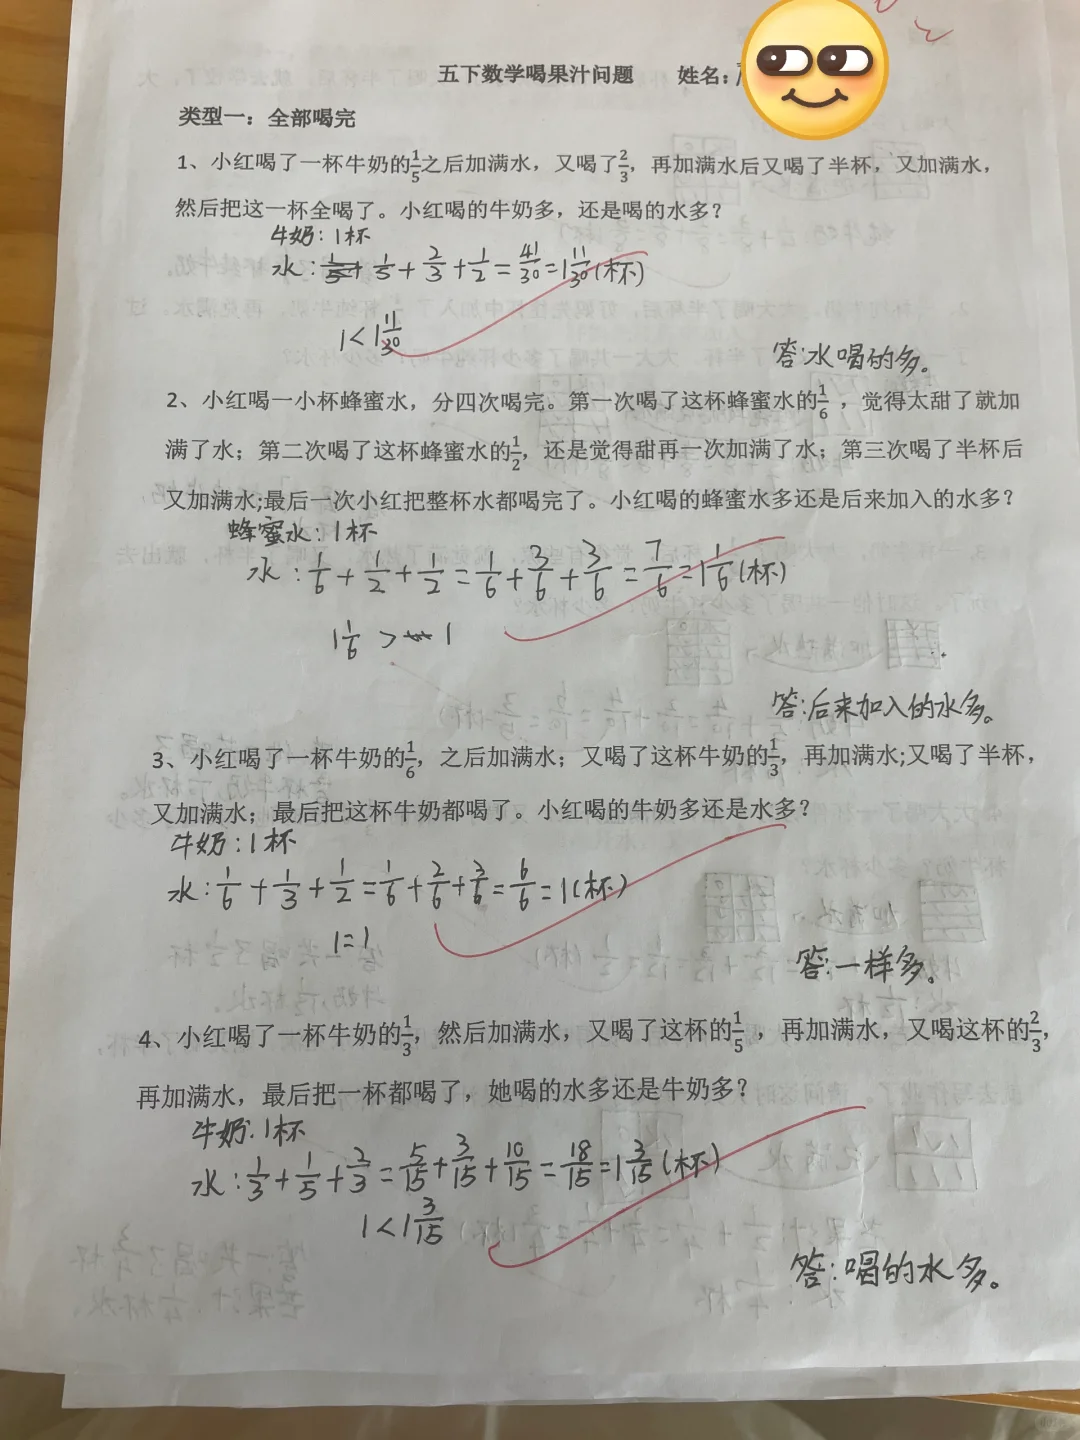 五下数学喝果汁问题 姓名:
类型一：全部喝完
1、小红喝了一杯牛奶的1/5之后加满水，又喝了2/3，再加满水后又喝了半杯，又加满水，
然后把这一杯全喝了。小红喝的牛奶多，还是喝的水多？
牛奶：1杯
水：1/5+1/5+2/3+1/2=41/30=1 11/30(杯)
1<1 11/30
答：水喝的多。
2、小红喝一小杯蜂蜜水，分四次喝完。第一次喝了这杯蜂蜜水的1/6，觉得太甜了就加
满了水；第二次喝了这杯蜂蜜水的1/2，还是觉得甜再一次加满了水；第三次喝了半杯后
又加满水;最后一次小红把整杯水都喝完了。小红喝的蜂蜜水多还是后来加入的水多？
蜂蜜水：1杯
水：1/6+1/2+1/2=1/6+3/6+3/6=7/6=1 1/6(杯)
1 1/6>1
答：后来加入的水多。
3、小红喝了一杯牛奶的1/6，之后加满水；又喝了这杯牛奶的1/3，再加满水;又喝了半杯，
又加满水；最后把这杯牛奶都喝了。小红喝的牛奶多还是水多？
牛奶：1杯
水：1/6+1/3+1/2=1/6+2/6+3/6=6/6=1(杯)
1=1
答：一样多。
4、小红喝了一杯牛奶的1/3，然后加满水，又喝了这杯的1/5，再加满水，又喝这杯的2/3，
再加满水，最后把一杯都喝了，她喝的水多还是牛奶多？
牛奶：1杯
水：1/3+1/5+2/3=5/15+3/15+10/15=18/15=1 3/15(杯)
1<1 3/15
答：喝的水多。